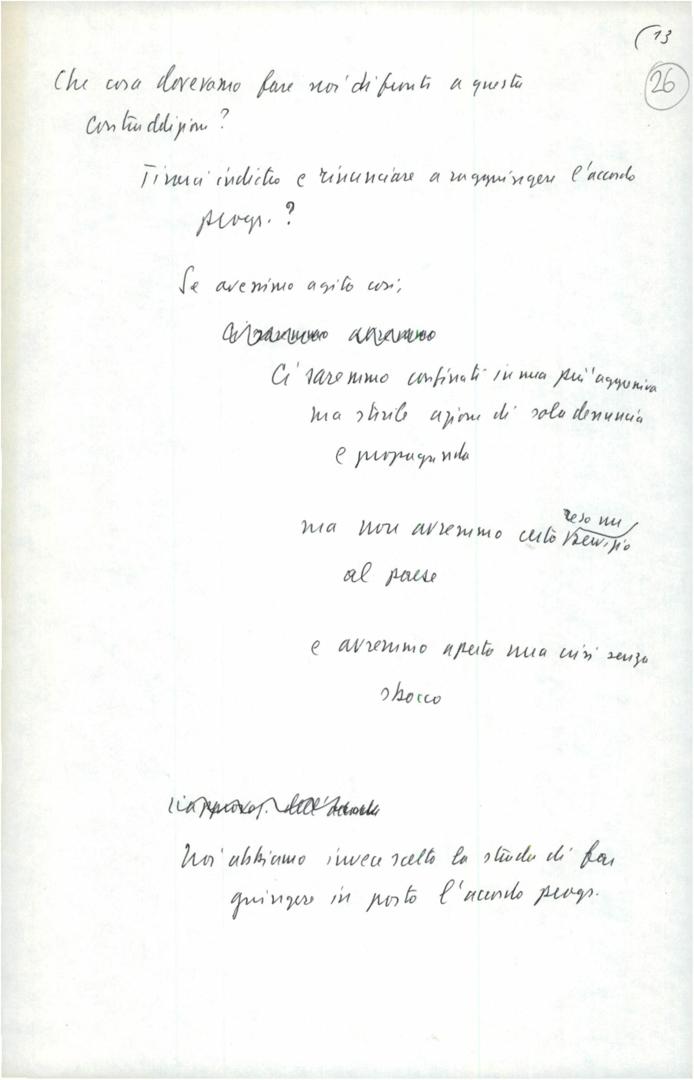 (13
26
Che cosa dovevamo fare noi di fronte a questa
contraddizione?
Tirarci indietro e rinunciare a raggiungere l'accordo
progr.?
Se avessimo agito così,
ci saremmo
Ci saremmo confinati in una più aggressiva
ma sterile azione di sola denuncia
e propaganda
reso un
ma non avremmo certo servizio
al paese
e avremmo aperto una crisi senza
sbocco
Noi abbiamo invece scelto la strada di far
giungere in porto l'accordo progr.